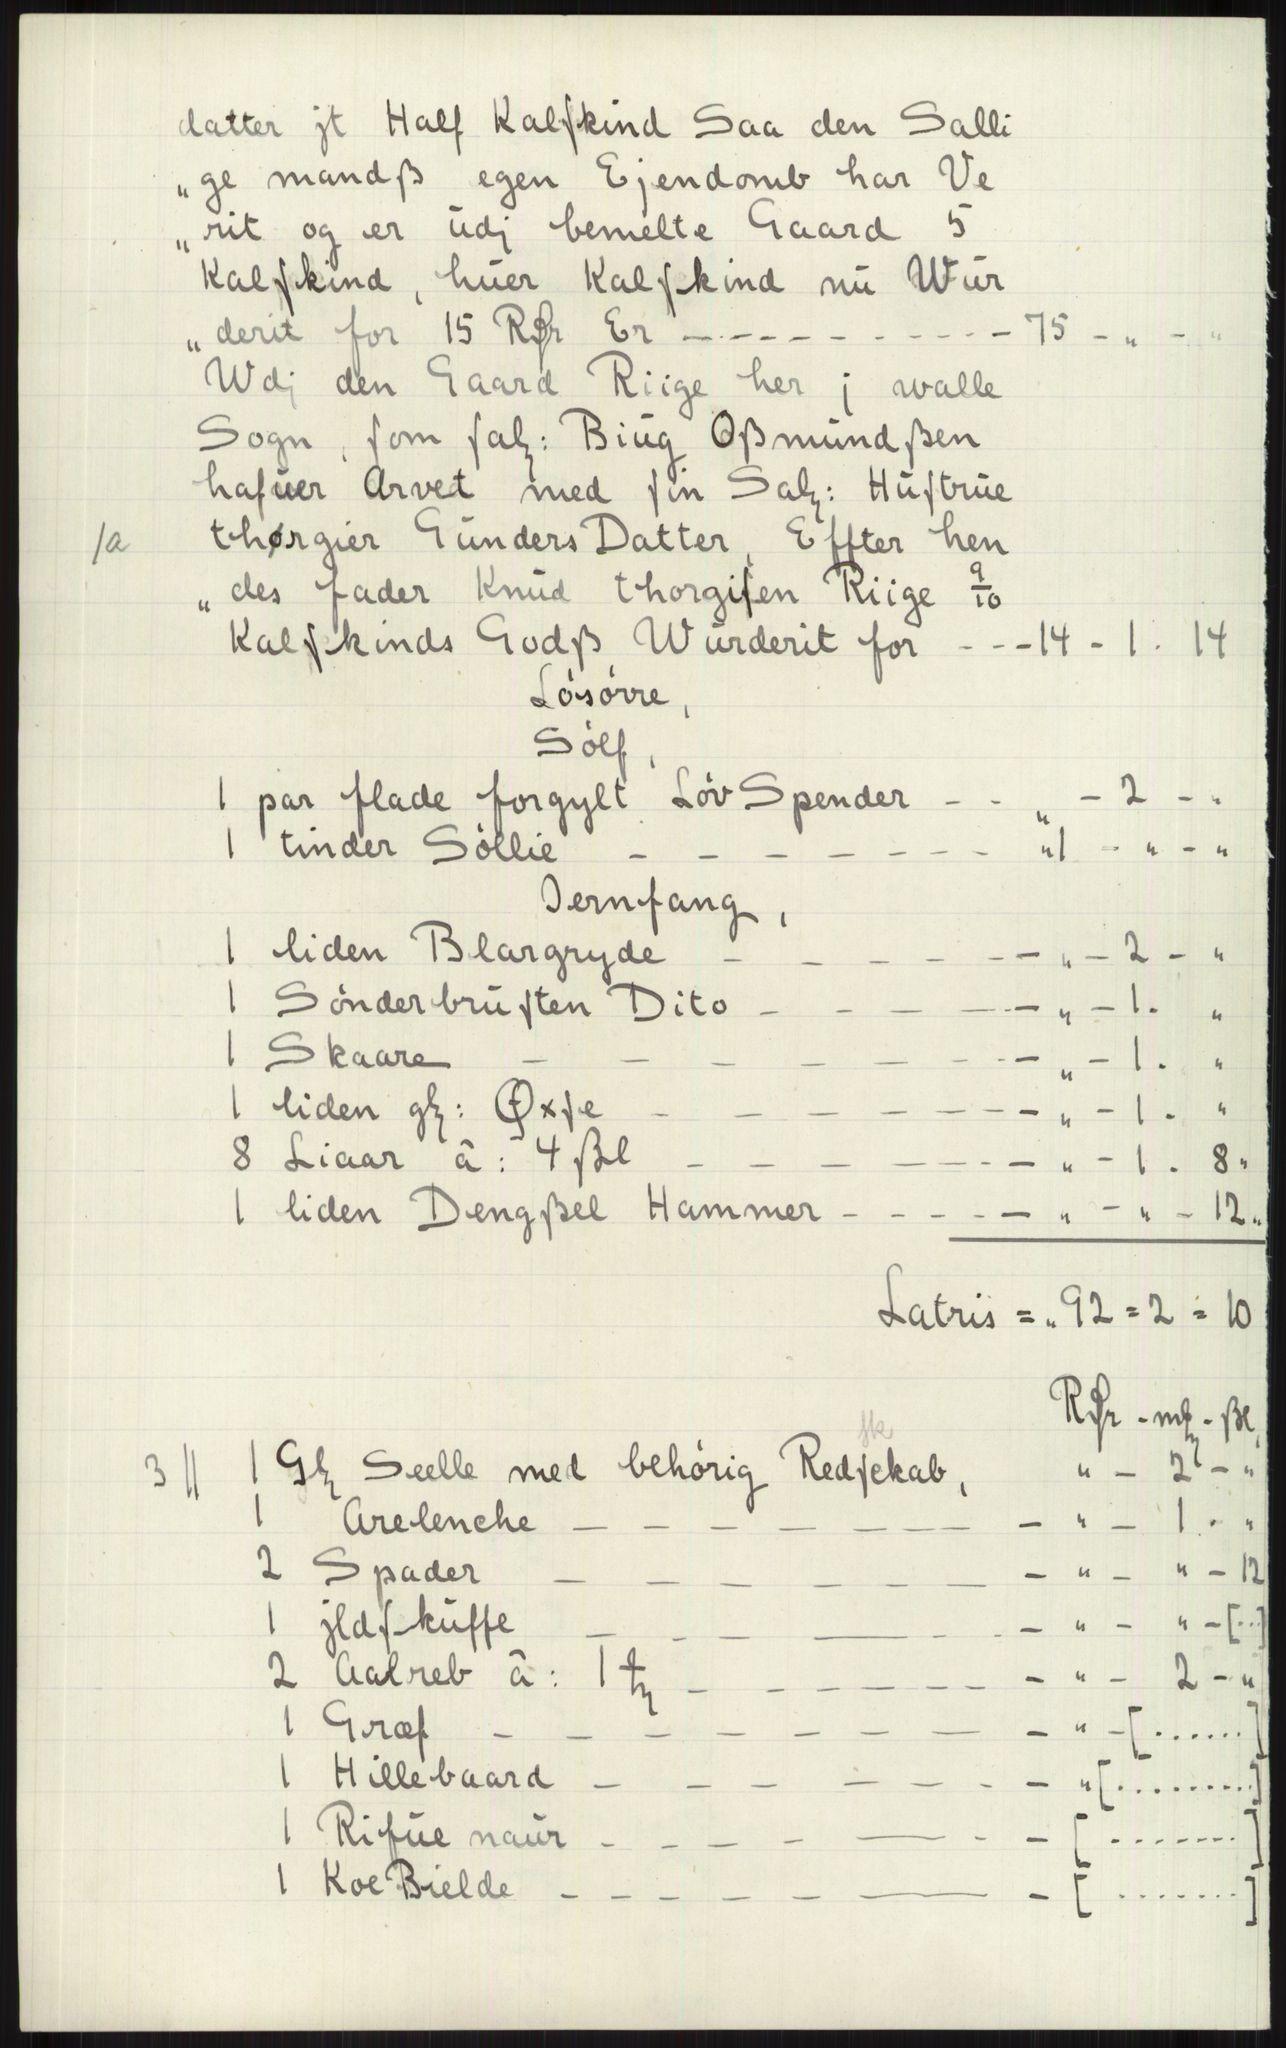 datter jt Half Kalfskind Saa den Salli
„ge mandß egen Ejendomb har Ve
„rit og er udj bemelte Gaard 5
Kalfskind, huer Kalfskind nu Wur
„derit for 15 Rdr Er - - - - - - - - - 75 - „ - „
Wdj den Gaard Riige her j walle
Sogn, som sal: Biug Oßmundßen
hafuer Arvet med sin Sal: Hustrue
/a thorgier GundersDatter, Effter hen
„des fader Knud thorgisen Riige 9/10
Kalfskinds Godß, Wurderit for - - - 14 - 1 . 14
Løsørre,
Sølf,
1 par flade forgylt LøvSpender - - „ - 2 - „
1 tinder Søllie - - - - - - - - „1 - „ - „
Jernfang,
1 liden Blargryde - - - - - - „ - 2 - „
1 Sønderbrusten Dito - - - - - - „ - 1 . „
1 Skaare - - - - - - - - „ - 1 . „
1 liden gl: Øxse - - - - - - - „ - 1 . „
8 Liaar â: 4 ßl - - - - - - - „ - 1 . 8 „
1 liden Dengßel Hammer - - - - - „ - „ - 12 „
Latris = „ 92 = 2 = 10
Rdr - mk - ßl,
3 || 1 Gl Seelle med behørig Redsekab, „ - 2 - „
1 Arelenche - - - - - - - - „ - 1 . „
2 Spader - - - - - - - „ - „ - 12
1 jldskuffe - - - - - - „ - „ - [...]
2 Aalreb â: 1 - - - - - - „ - 2 - „
1 Græf - - - - - - - - „ - [......]
1 Hillebaard - - - - - - - „ [........]
1 Rifue naur - - - - - - - [.......]
1 KoeBielde - - - - - - - [.......]